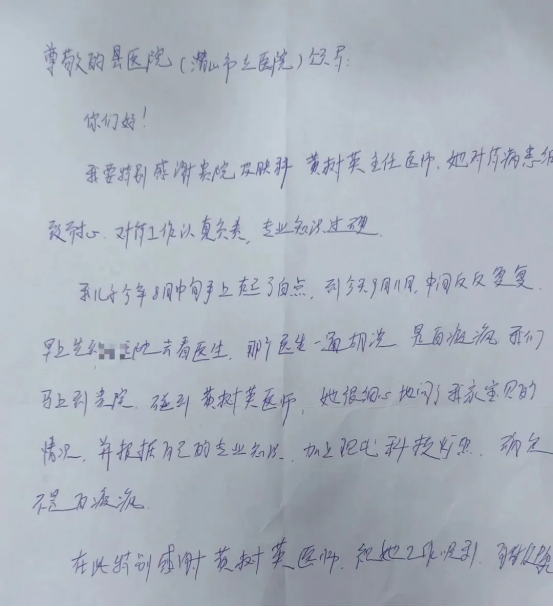 尊敬的县医院(潜山市立医院)领导:
你们好!
我要特别感谢贵院皮肤科 黄树英主任医师。她对待病患细
致耐心。对待工作认真负责,专业知识过硬。
我儿子今年8月中旬手上起了白点,到今天9月11日,中间反反复复。
早上先 去看医生,那个医生一通胡说 是白癜疯 我们
马上到贵院。碰到黄树英医师,她很细心地问了我家宝贝的
情况,并根据自己的专业知识、加上现代科技灯照,确定
不是白癜疯。
在此特别感谢黄树英医师。祝她工作顺利。